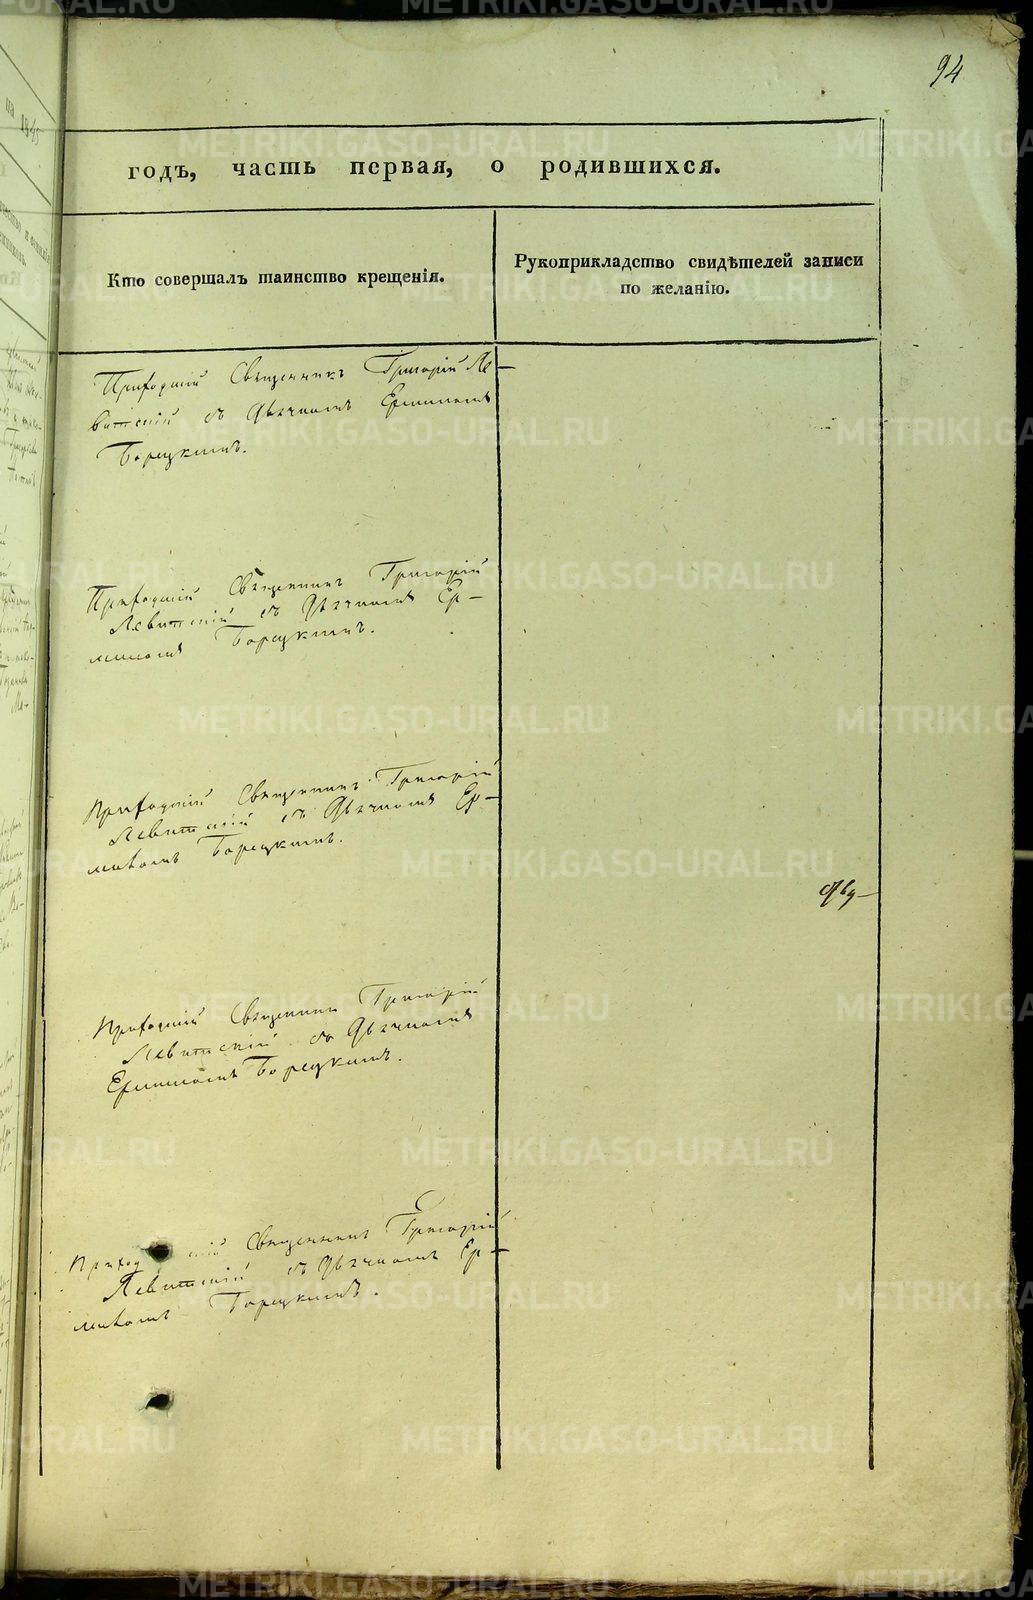 94
годъ, часть первая, о родившихся.
Кто совершалъ таинство крещенія.
Рукоприкладство свидѣтелей записи
по желанію.
Приходскій Священникъ Григорій Ле-
витскій съ Дьячкомъ
Борецкимъ.
Приходскій Священникъ Григорій
Левитскій съ Дьячкомъ Ер-
Борецкимъ.
Приходскій Священникъ Григорій
Левитскій съ Дьячкомъ Ер-
Борецкимъ.
Приходскій Священникъ Григорій
Левитскій съ Дьячкомъ
Борецкимъ.
Священникъ Григорій
Левитскій съ Дьячкомъ Ер-
Борецкимъ.
METRIKI.GASO-URAL.RU